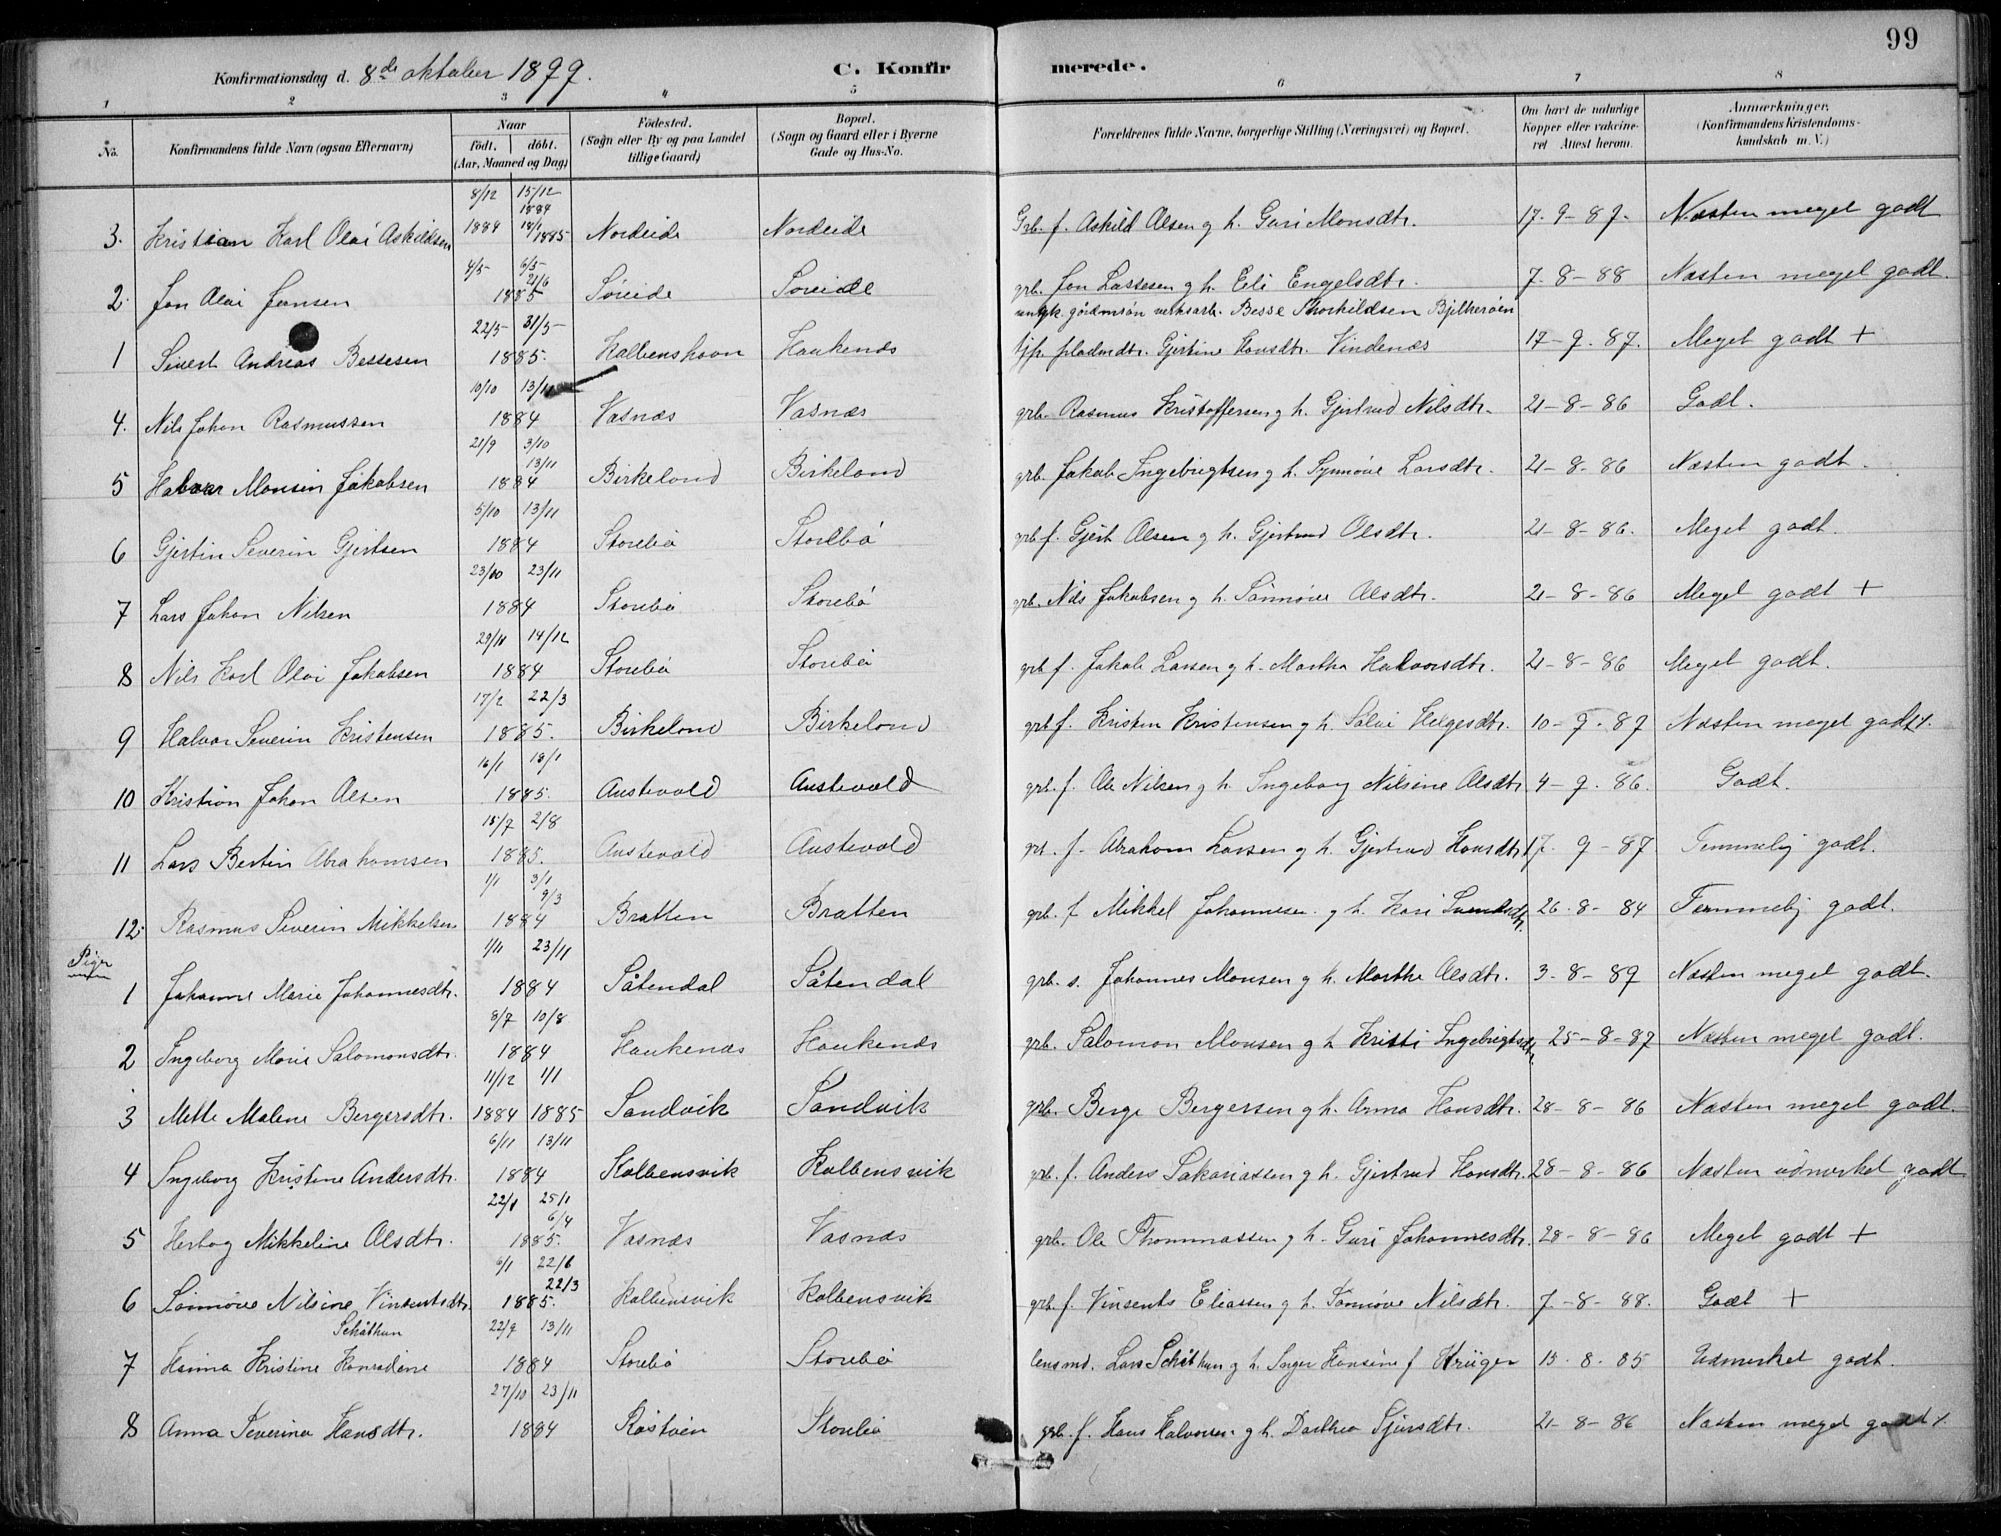 99
Konfirmationsdag d. 8de oktober 1899. C. Konfirmerede.
1 2 3 4 5 6 7 8
No. Konfirmandens fulde Navn (ogsaa Efternavn) Naar født. døbt. (Aar, Maaned og Dag) Fødested. (Sogn eller By og paa Landet tillige Gaard) Bopæl. (Sogn og Gaard eller i Byerne Gade og Hus-No. Forældrenes fulde Navne, borgerlige Stilling (Næringsvei) og Bopæl. Om havt de naturlige Kopper eller vakcineret Attest herom. Anmærkninger. (Konfirmandens Kristendomskundskab m. V.)
8/12 15/12 1884
3. Kristian Karl Olai Askildsen 1884 18/1 1885 Nordeide Nordeide Grb. f. Askild Olsen g h. Guri Monsdtr. 17-9-87. Næsten meget godt
4/5 6/5 21/6
2. Jon Olai Jonsen 1885 Søreide Søreide grb. Jon Lassesen g h. Eli Engelsdtr. 7-8-88 Næsten meget godt.
22/5 31/5 Besse Thorkildsen
1 Sivert Andreas Bessesen 1885. Kalvenshavn Haukenæs Gjertine Hansdtr. Vindenæs 17-9.87. Meget godt +
10/10 13/11
4. Nils Johan Rasmussen 1884 Vasnæs Vasnæs grb. Rasmus Kristoffersen g h. Gjertrud Nilsdtr. 21-8-86 Godt.
21/9 3/10 13/11
5 Halvar Monsen Jakobsen 1884 Birkeland Birkeland grb. Jakob Ingebrigtsen g h. Synnøve Larsdtr. 21-8-86 Næsten godt.
5/10 13/11
6 Gjertin Severin Gjertsen 1884 Storebø Storebø grb f. Gjert Olsen g h. Gjertrud Olsdtr. 21-8-86. Meget godt.
23/10 23/11
7 Lars Johan Nilsen 1884 Storebø Storebø grb. Nils Jakobsen g h. Sønnøve Olsdtr. 21-8-86 Meget godt +
29/11 14/12
8 Nils Karl Olai Jakobsen 1884 Storebø Storebø grb f. Jakob Larsen g h. Martha Halvorsdtr. 21-8-86 Meget godt.
17/2 22/3
9 Halvor Severin Kristensen 1885. Birkeland Birkeland grb f. Kristen Kristensen g h. Salvi Helgesdtr. 10-9-87 Næsten meget godt
16/1 18/1
10 Kristian Johan Olsen 1885. Austevold Austevold grb. f. Ole Nilsen g h Ingeborg Nilsine Olsdtr. 4-9.86. Godt.
15/7 2/8
11 Lars Bertin Abrahamsen 1885. Austevold Austevold f. Abraham Larsen g h. Gjertrud Hansdtr. 17-9-87 Temmelig godt.
1/1 3/1 9/3
12. Rasmus Severin Mikkelsen 1884 Bratten Bratten grb. f Mikkel Johannesen g h. Kari Svendsdtr. 26-8-84 Temmelig godt.
Piger 1/11 23/11
1 Johanne Marie Johannesdtr. 1884 Såtendal Såtendal grb. s. Johannes Monsen g h. Marthe Olsdtr. 3-8-89 Næsten meget godt.
8/7 10/8
2 Ingeborg Marie Salomonsdtr. 1884 Haukenæs Haukenæs grb. Salomon Monsen g h Kristi Ingebrigtsdtr. 25-8-87 Næsten meget godt.
11/12 1/1
3 Mette Malene Bergersdtr. 1884 1885 Sandvik Sandvik grb. Berge Bergersen g h. Anna Hansdtr. 28-8-86 Næsten meget godt.
6/11 13/11
4 Ingeborg Kristine Andersdtr. 1884 Kolbensvik Kolbensvik grb. f. Anders Sakariassen g h. Gjertrud Hansdtr. 28-8-86 Næsten udmerket godt
22/1 25/1 6/4
5 Herborg Mikkeline Olsdtr. 1885. Vasnæs Vasnæs grb. Ole Thommassen g h. Guri Johannesdtr. 28-8-86 Meget godt +
6/1 22/6 22/3
6 Sønnøve Nilsine Vinsentsdtr. 1885. Kolbensvik Kolbensvik grb. f. Vinsents Eliassen g h. Sønnøve Nilsdtr. 7-8-88. Godt +
Schåthun 22/9 13/11
7 Hanna Kristine Konradine 1884 Storebø Storebø lensmd. Lars Schåthun g h. Inger Hansine f Krüger 15.8.85 Udmerket godt.
27/10 23/11
8 Anna Severina Hansdtr. 1884 Storebø grb. f. Hans Halvorsen g h. Dorthea Sjursdtr. 21-8-86 Næsten meget godt